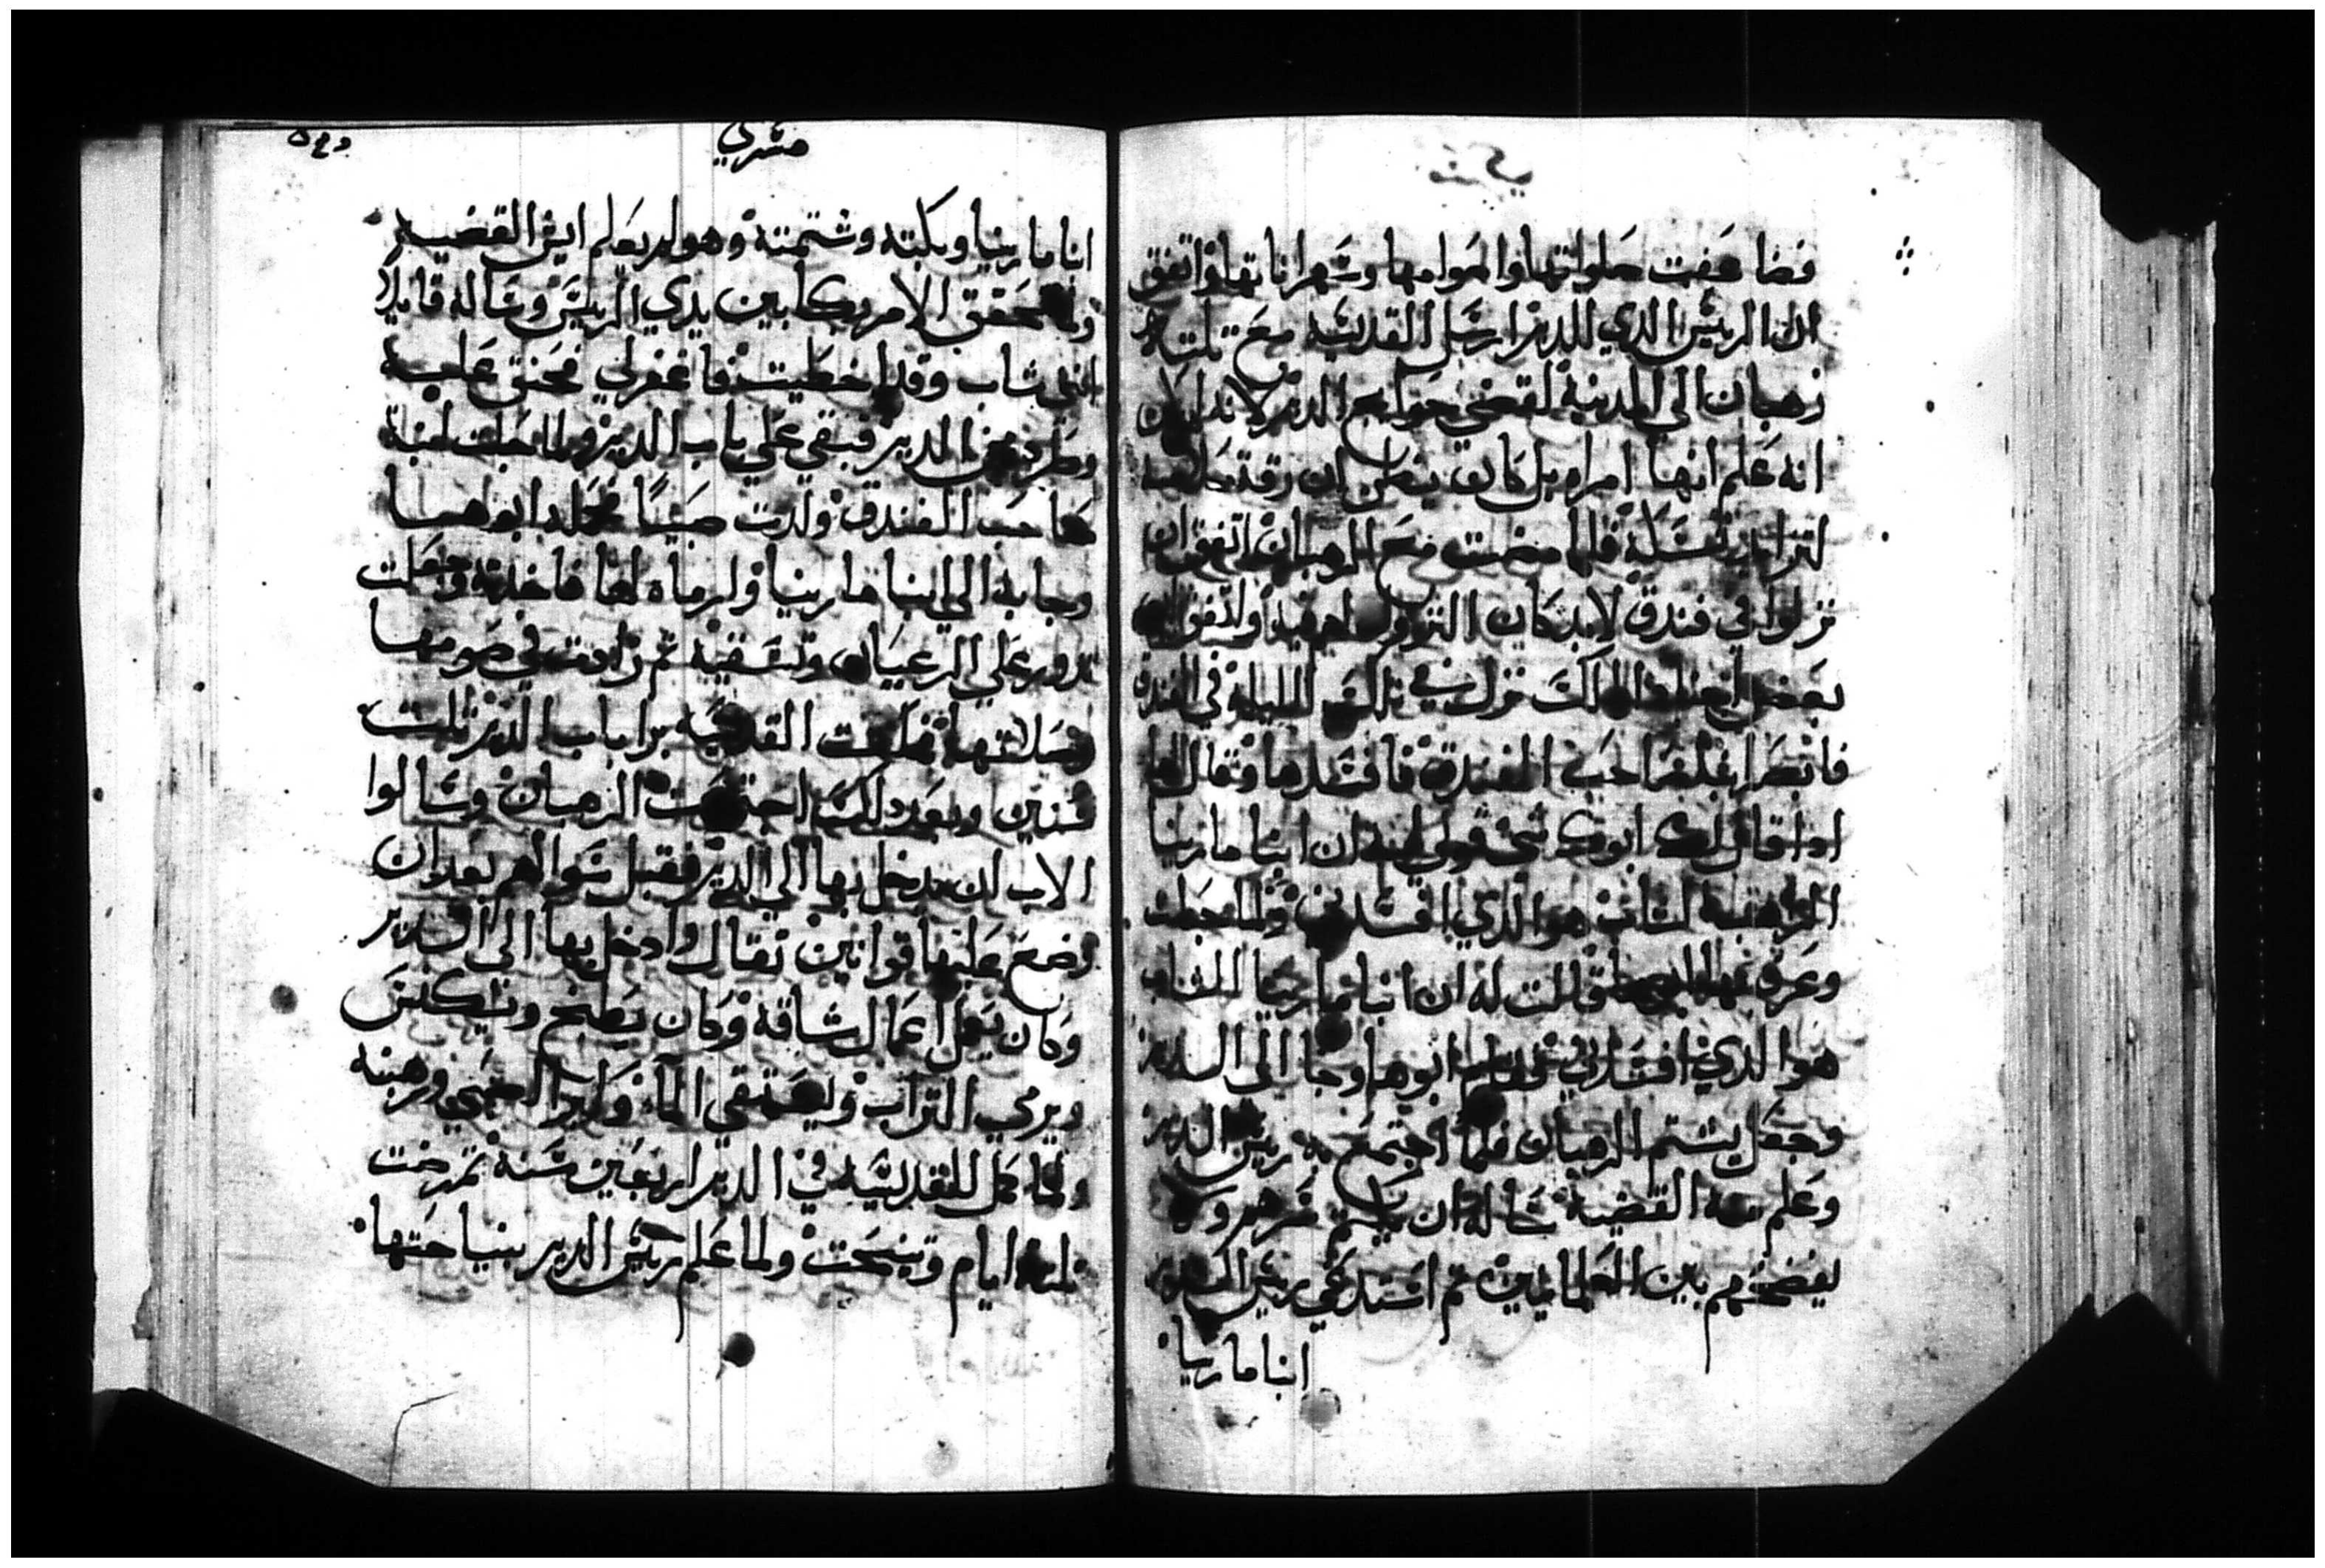 مسري
فضاعفت صلواتها واصوامها وسهراناتها واتفق
ان الريس الدي للدير ارسل القديسه مع تلته
رهبان الي المدينة لقضي حوايج الدير لا
انه علم انها امراه بل كان يظن ان رقة
فلما مضت مع الرهبان اتفق ان
نزلوا في فندق لابد كان النزول فيه واتفق ان
بعض نزل في تلك الليلة في الفندق
صاحب الفندق فافسدها وقال لها
ادا قال لك ابوك شي قولي له ان انبا مارينا
الراهب الشاب هو الدي افسدني ولما حبلت
وعرف ابوها قالت له ان انبا مارينا الشاب
هو الدي افسدني فقام ابوها وجا الى الدير
وجعل يشتم الرهبان فلما اجتمع به ريس الدير
وعلم منه القضية ساله ان يكتم ولا
يفضحهم بين العلمانيين تم استدعي ريس الدير
انبا مارينا
مسري
انبا مارينا وبكته وشتمته وهو لم يعلم ايش القضيه
ولما تحقق الامر بكا بين يدي الريس وساله قايلا
اني شاب وقد اخطيت فاغفر لي فحنق عليه
وطرده من الدير فبقي علي باب الدير ولما حبلت ابنة
صاحب الفندق ولدت صبيًا فحمله ابوها
وجا به الي انبا مارينا ولرماه لها فاخدته وجعلت
تدور علي الرعيان وتسقيه تم زادت في صومها
وصلاتها فمكتت القديسه برا باب الدير تلت
سنين وبعد دلك اجتمعت الرهبان وسالوا
الاب ان يدخل بها الي الدير فقبل سوالهم بعد ان
وضع عليها قوانين تقال وادخل بها الى الدير
وكان يعمل اعمال شاقة وكان يطبخ ويكنس
ويرمي التراب ويستقي الماء الصبي ورهبنه
ولما كمل للقديسه في الدير اربعين سنة تمرضت
تلتة ايام وتنيحت ولما علم ريس الدير بنياحتها